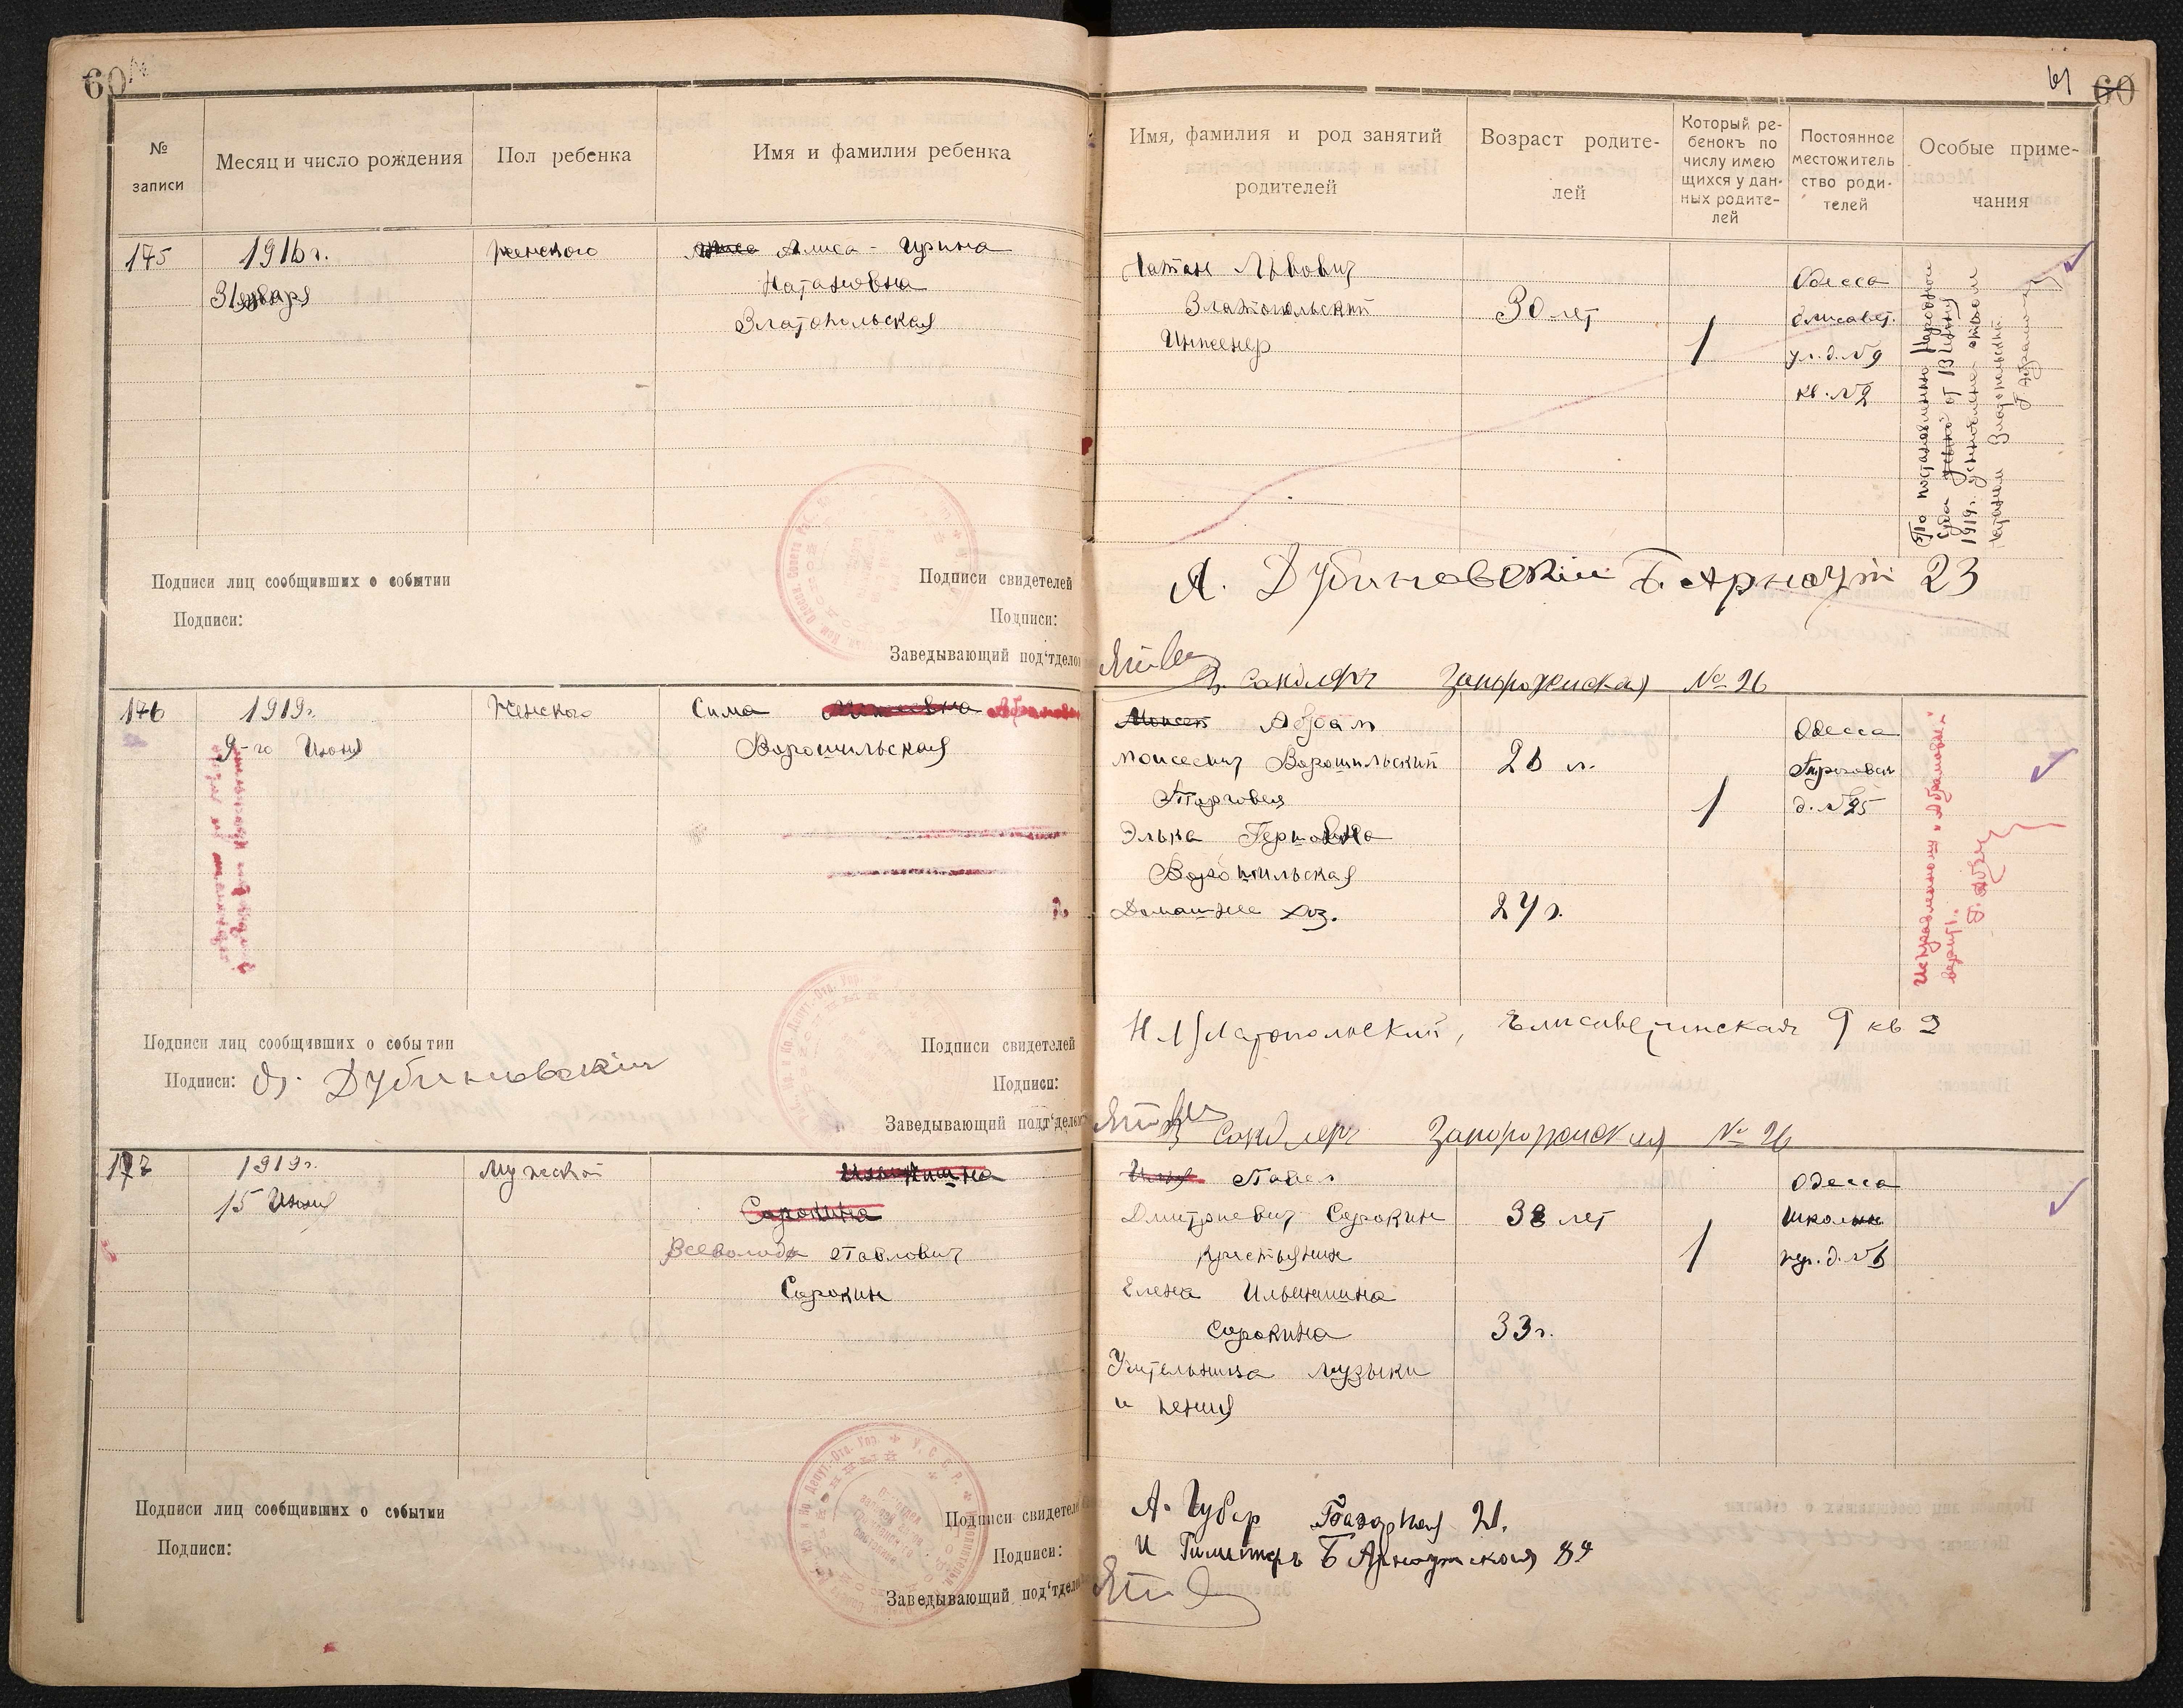 60
№ записи
Месяц и число рождения
Пол ребенка
Имя и фамилия ребенка
175
1916 г.
31 января
женского
Алиса - Ирина
Натановна
Златопольская
Подписи лиц сообщивших о событии
Подписи:
Подписи свидетелей
Подписи:
Заведывающий под'тдело
176
1919 г.
9-го Июня
Женского
Сима
Ворошильская
Подписи лиц сообщивших о событии
Подписи: Дубиновскій
Подписи свидетелей
Подписи:
Заведывающий под'тдел
177
1919 г.
15 Июня
Мужской
Сорокина
Всеволод Павлович
Сорокин
Подписи лиц сообщивших о событии
Подписи:
Подписи свидетел
Подписи:
Заведывающий под'тдело
61 60
Имя, фамилия и род занятий
родителей
Возраст родите-
лей
Который ре-
бенокъ по
числу имею
щихся у дан-
ных родите-
лей
Постоянное
местожитель
ство роди-
телей
Особые приме-
чания
Натан Львович
Златопольский
Инженер
30 лет
1
Одесса
Елисавет.
ул. д. № 9
кв. № 2
По постановлению Народного
Суда от 13 Июня
1919 г. усыновлена отцом
Натаном Златопольским
А. Дубиновскій Б. Арнаут 23
Сандлеръ Запорожская № 26
Моисей Абрам
Моисеевич Ворошильский
Торговец
Элька Гершовна
Ворошильская
Домашнее хоз.
28 л.
27 г.
1
Одесса
Пироговск
д. № 25
Исправленному "Абрамовна"
верить.
Н Л Златопольский, Елисаветинская 9 кв 2
Сандлеръ Запорожская № 26
Илья Павел
Дмитриевич Сорокин
Крестьянин
Елена Ильинишна
Сорокина
Учительница музыки
и пения
38 лет
33 г.
1
Одесса
Школьн.
пер. д. № 6
А. Губер Базарная 21.
И Б Арнаутская 89